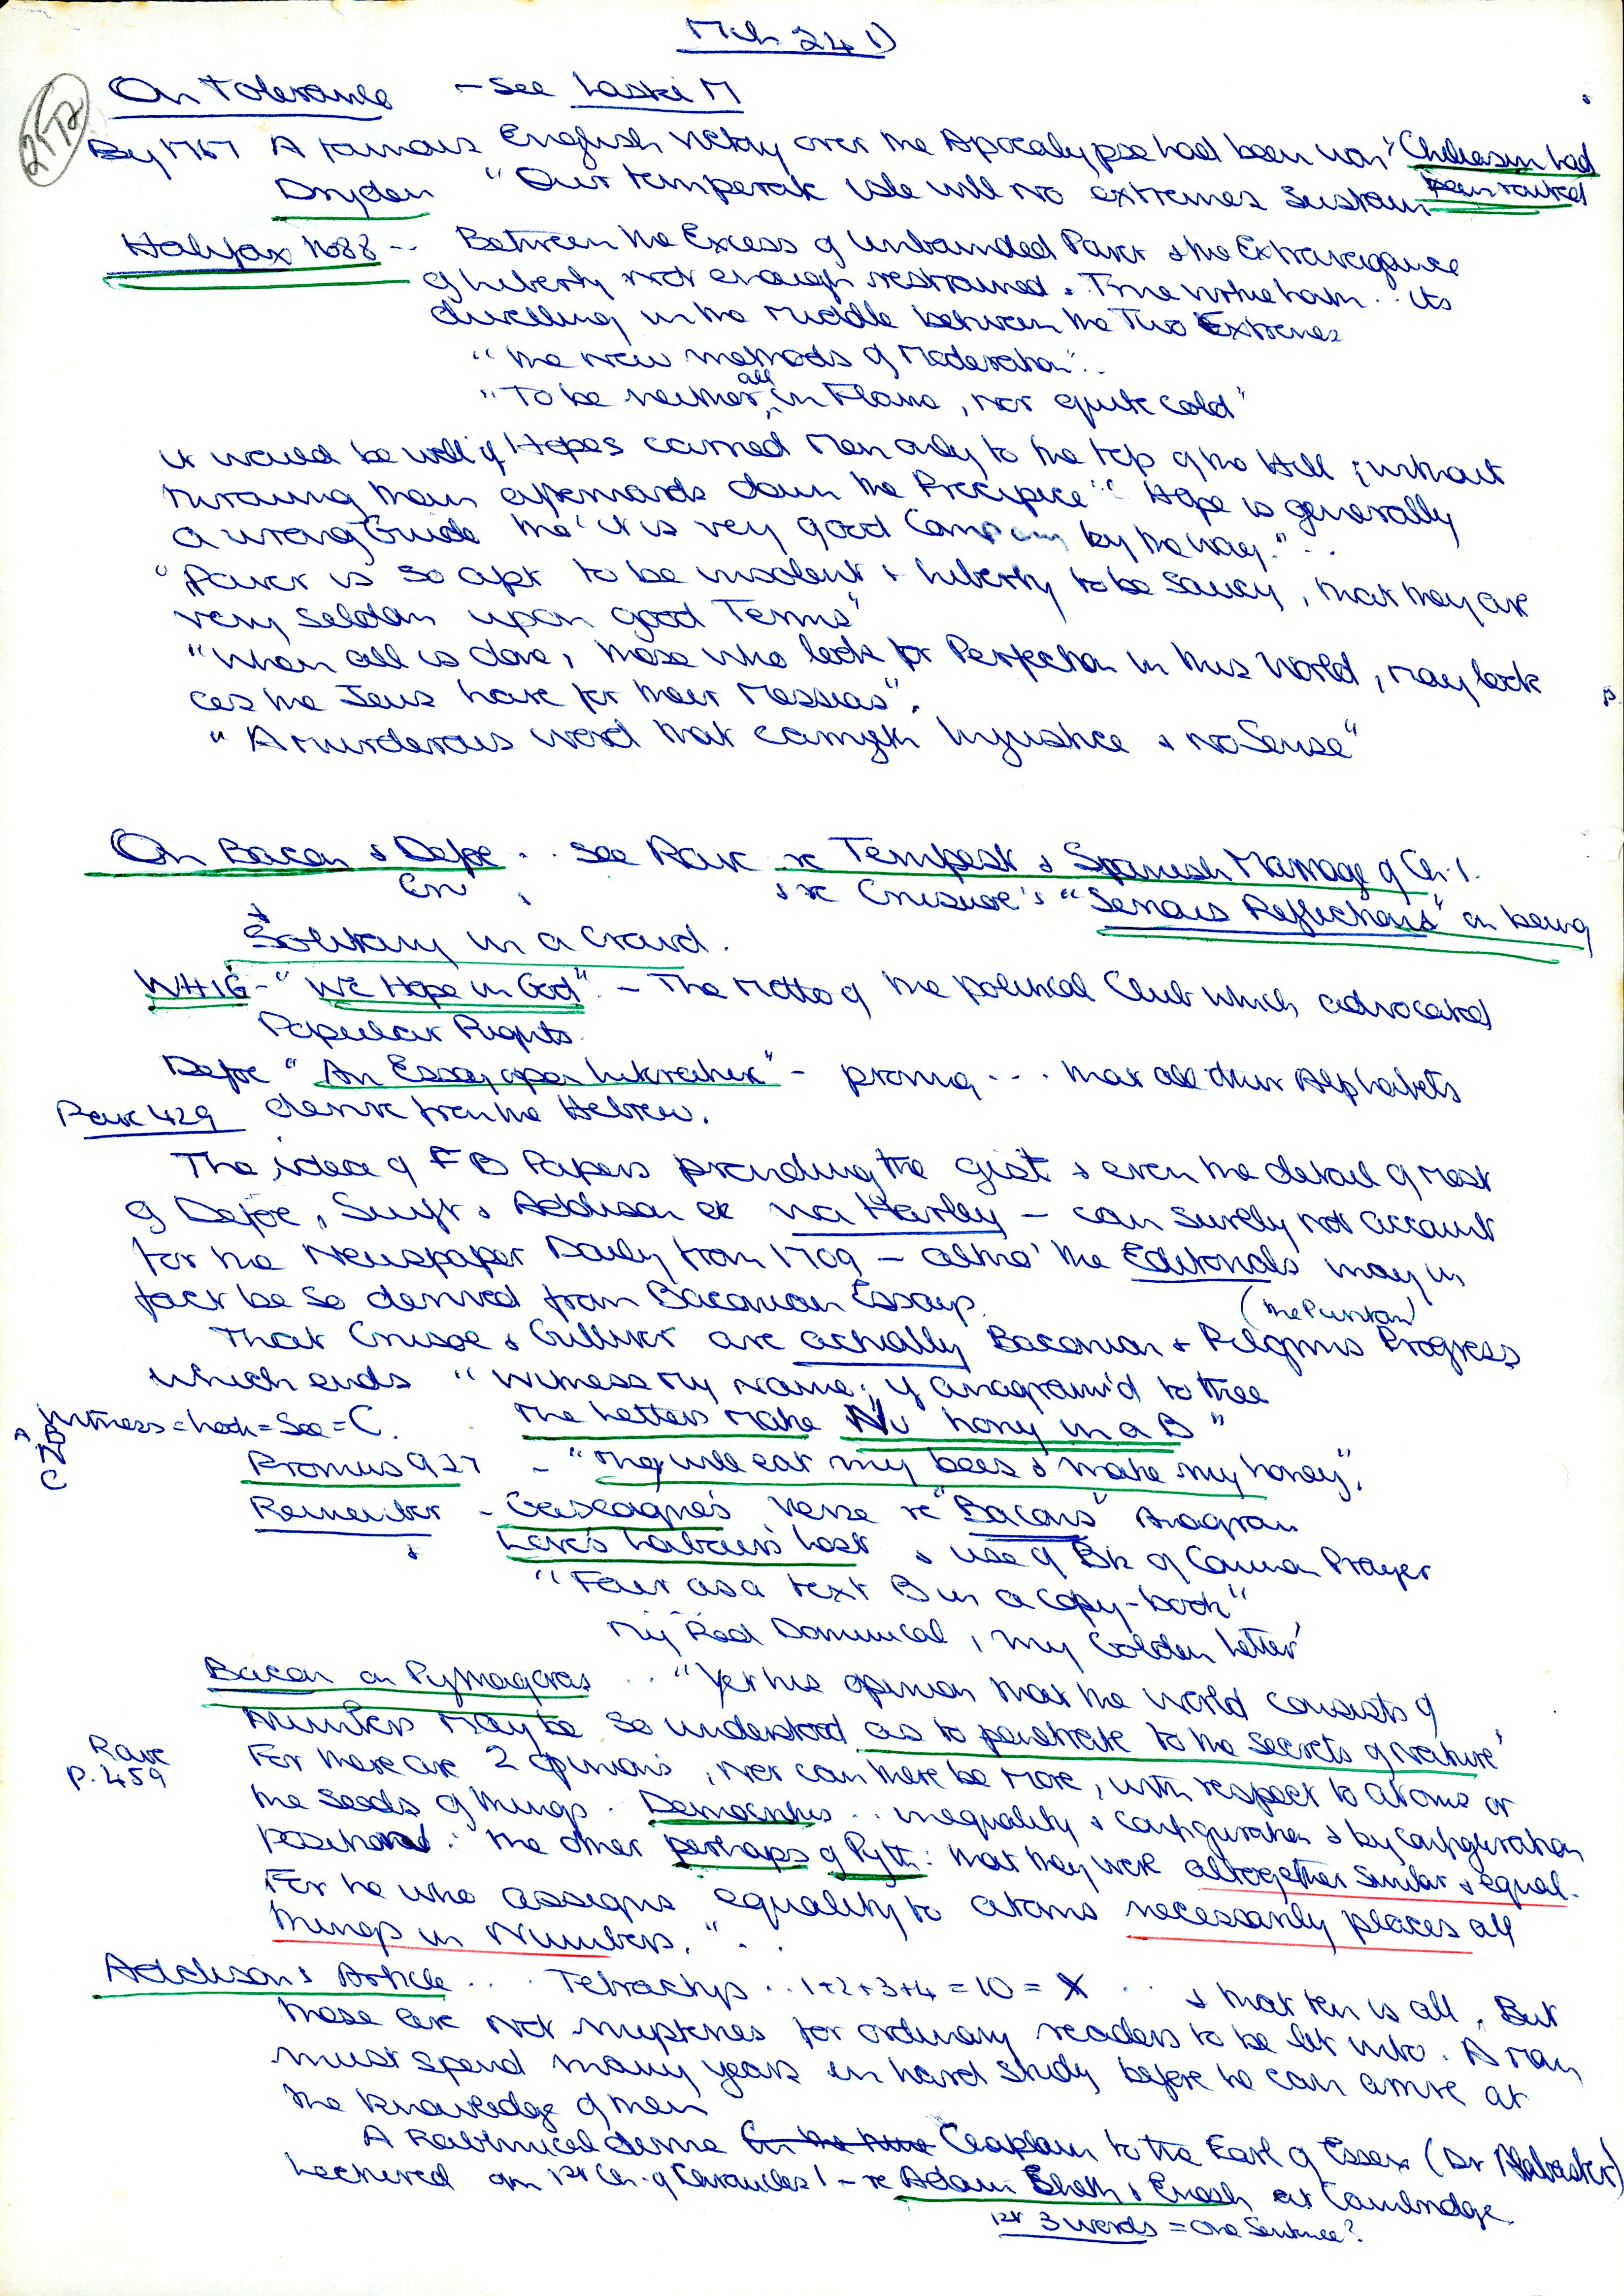 Mch 24 1)
2172
On Tolerance - See Laski M
By 1767 A famous English victory over the Apocalypse had been won" Chiliasm had
been routed
Dryden "Our temperate isle will no extremes sustain
Halifax 1688 -- Between the Excess of Unbounded Power & the Extravagance
of Liberty not enough restrained. True virtue hath .. its
dwelling in the middle between the Two Extremes
"the new methods of Moderation"..
"To be neither all in Flame, nor quite cold"
it would be well if Hopes carried Men only to the top of the Hill ; without
throwing them afterwards down the Precipice" " Hope is generally
a wrong Guide tho' it is very good Company by the way." ..
"Power is so apt to be insolent & Liberty to be saucy, that they are
very seldom upon good Terms"
"When all is done, those who look for Perfection in this World, may look
as the Jews have for their Messias".
"A murderous word that carryeth Injustice & no Sense"
On Bacon & Defoe .. see Rowe re Tempest & Spanish Marriage of Ch.1.
& re Crusoe's "Serious Reflections" on being
Solitary in a Crowd.
WHIG - "We Hope in God" - The Motto of the political Club which advocated
Popular Rights.
Defoe "An Essay upon Literature" - proving ... that all our Alphabets
Rowe 429 derive from the Hebrew.
The idea of FB Papers providing the gist & even the detail of most
of Defoe, Swift & Addison etc via Harley - can surely not account
for the Newspaper Daily from 1709 - altho' the Editorials may in
fact be so derived from Baconian Essays.
(the Puritan)
That Crusoe & Gulliver are actually Baconian & Pilgrims Progress
which ends "Witness my name; if anagram'd to thee
The Letters make Nu hony in a B"
Witness = look = See = C.
A B
N
C
Promus 927 - "They will eat my bees & make my honey".
Remember - Gascoigne's verse re "Bacons" Anagram
& Love's Labour's Lost & use of Bk of Common Prayer
"Fair as a text B in a copy-book"
My Red Dominical, my Golden Letter'
Bacon on Pythagoras .. "Yet his opinion that the world consists of
Numbers may be so understood as to penetrate to the secrets of nature'
Rowe
P.459
For there are 2 opinions, nor can there be more, with respect to atoms or
the seeds of things. Democritus .. inequality & configuration & by configuration
position: the other perhaps of Pyth: that they were altogether similar & equal.
For he who assigns equality to atoms necessarily places all
things in Numbers." ..
Addison's Article ... Tetractys .. 1+2+3+4 = 10 = X .. & that ten is all. But
these are not mysteries for ordinary readers to be let into. A man
must spend many years in hard study before he can arrive at
the knowledge of them
A Rabbinical divine Chaplain to the Earl of Essex (Dr Alabaster)
Lectured on 1st Ch. of Chronicles 1 - re Adam Sheth & Enosh at Cambridge.
1st 3 words = One Sentence?